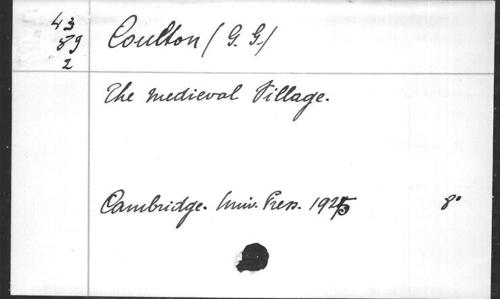 43
89
2
Coulton (G. G.)
The medieval Village.
Cambridge. Univ. Press. 1925 8°